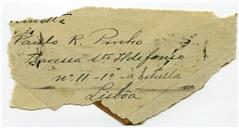 Paulo R. Pinho
Travessa Sto Ildefonso
nº 11-1º-a
Lisbôa